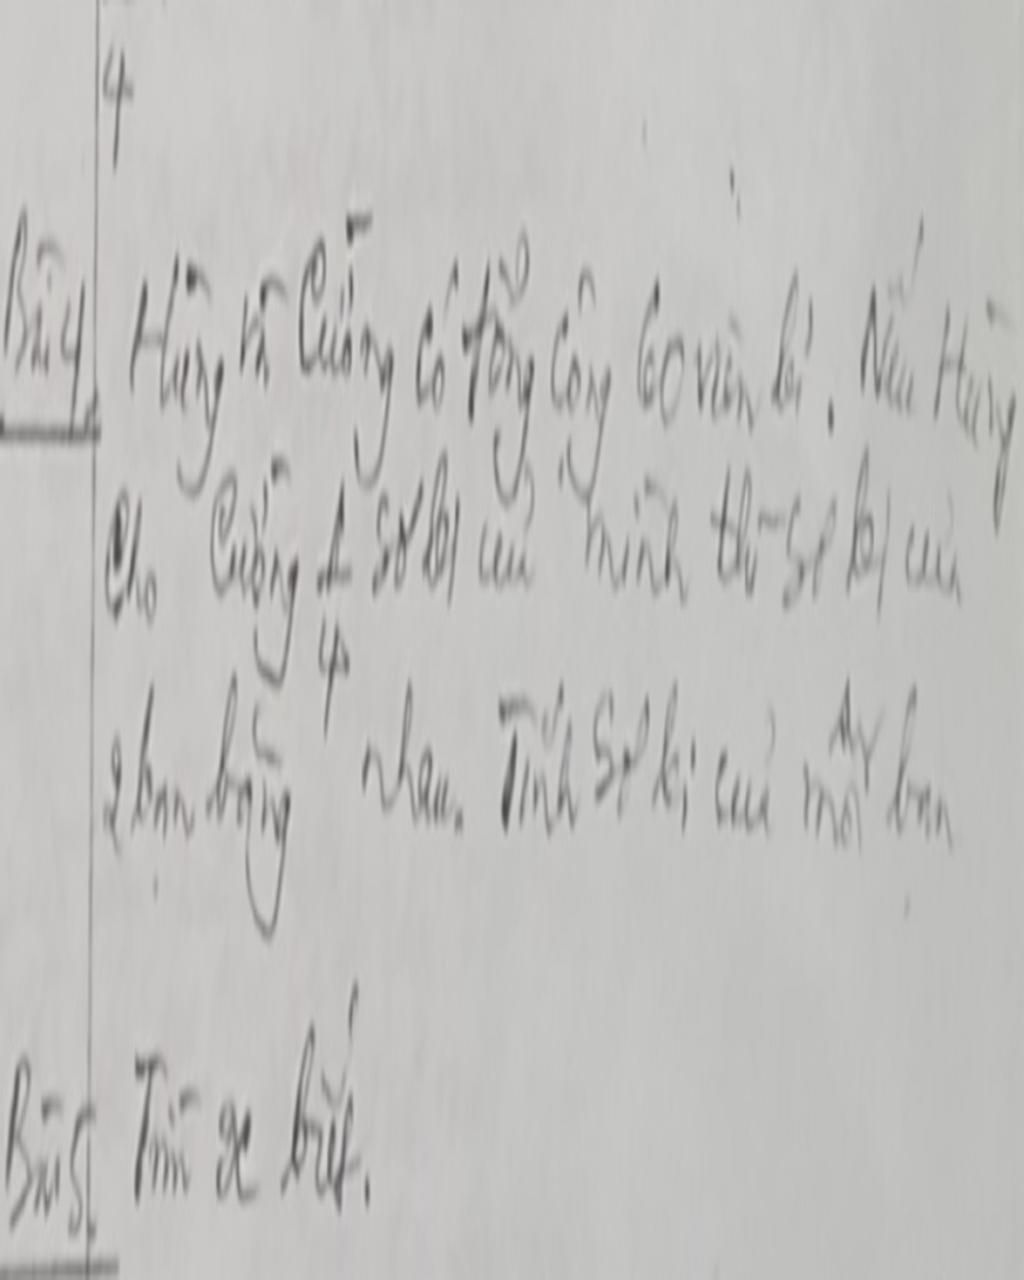 4
Bài 4 Hùng và Cường có tổng cộng 60 viên bi. Nếu Hùng
Cho Cường 1/4 số bi của mình thì số bi của
2 bạn bằng nhau. Tính Số bi của mỗi bạn
Bài 5 Tìm x biết.